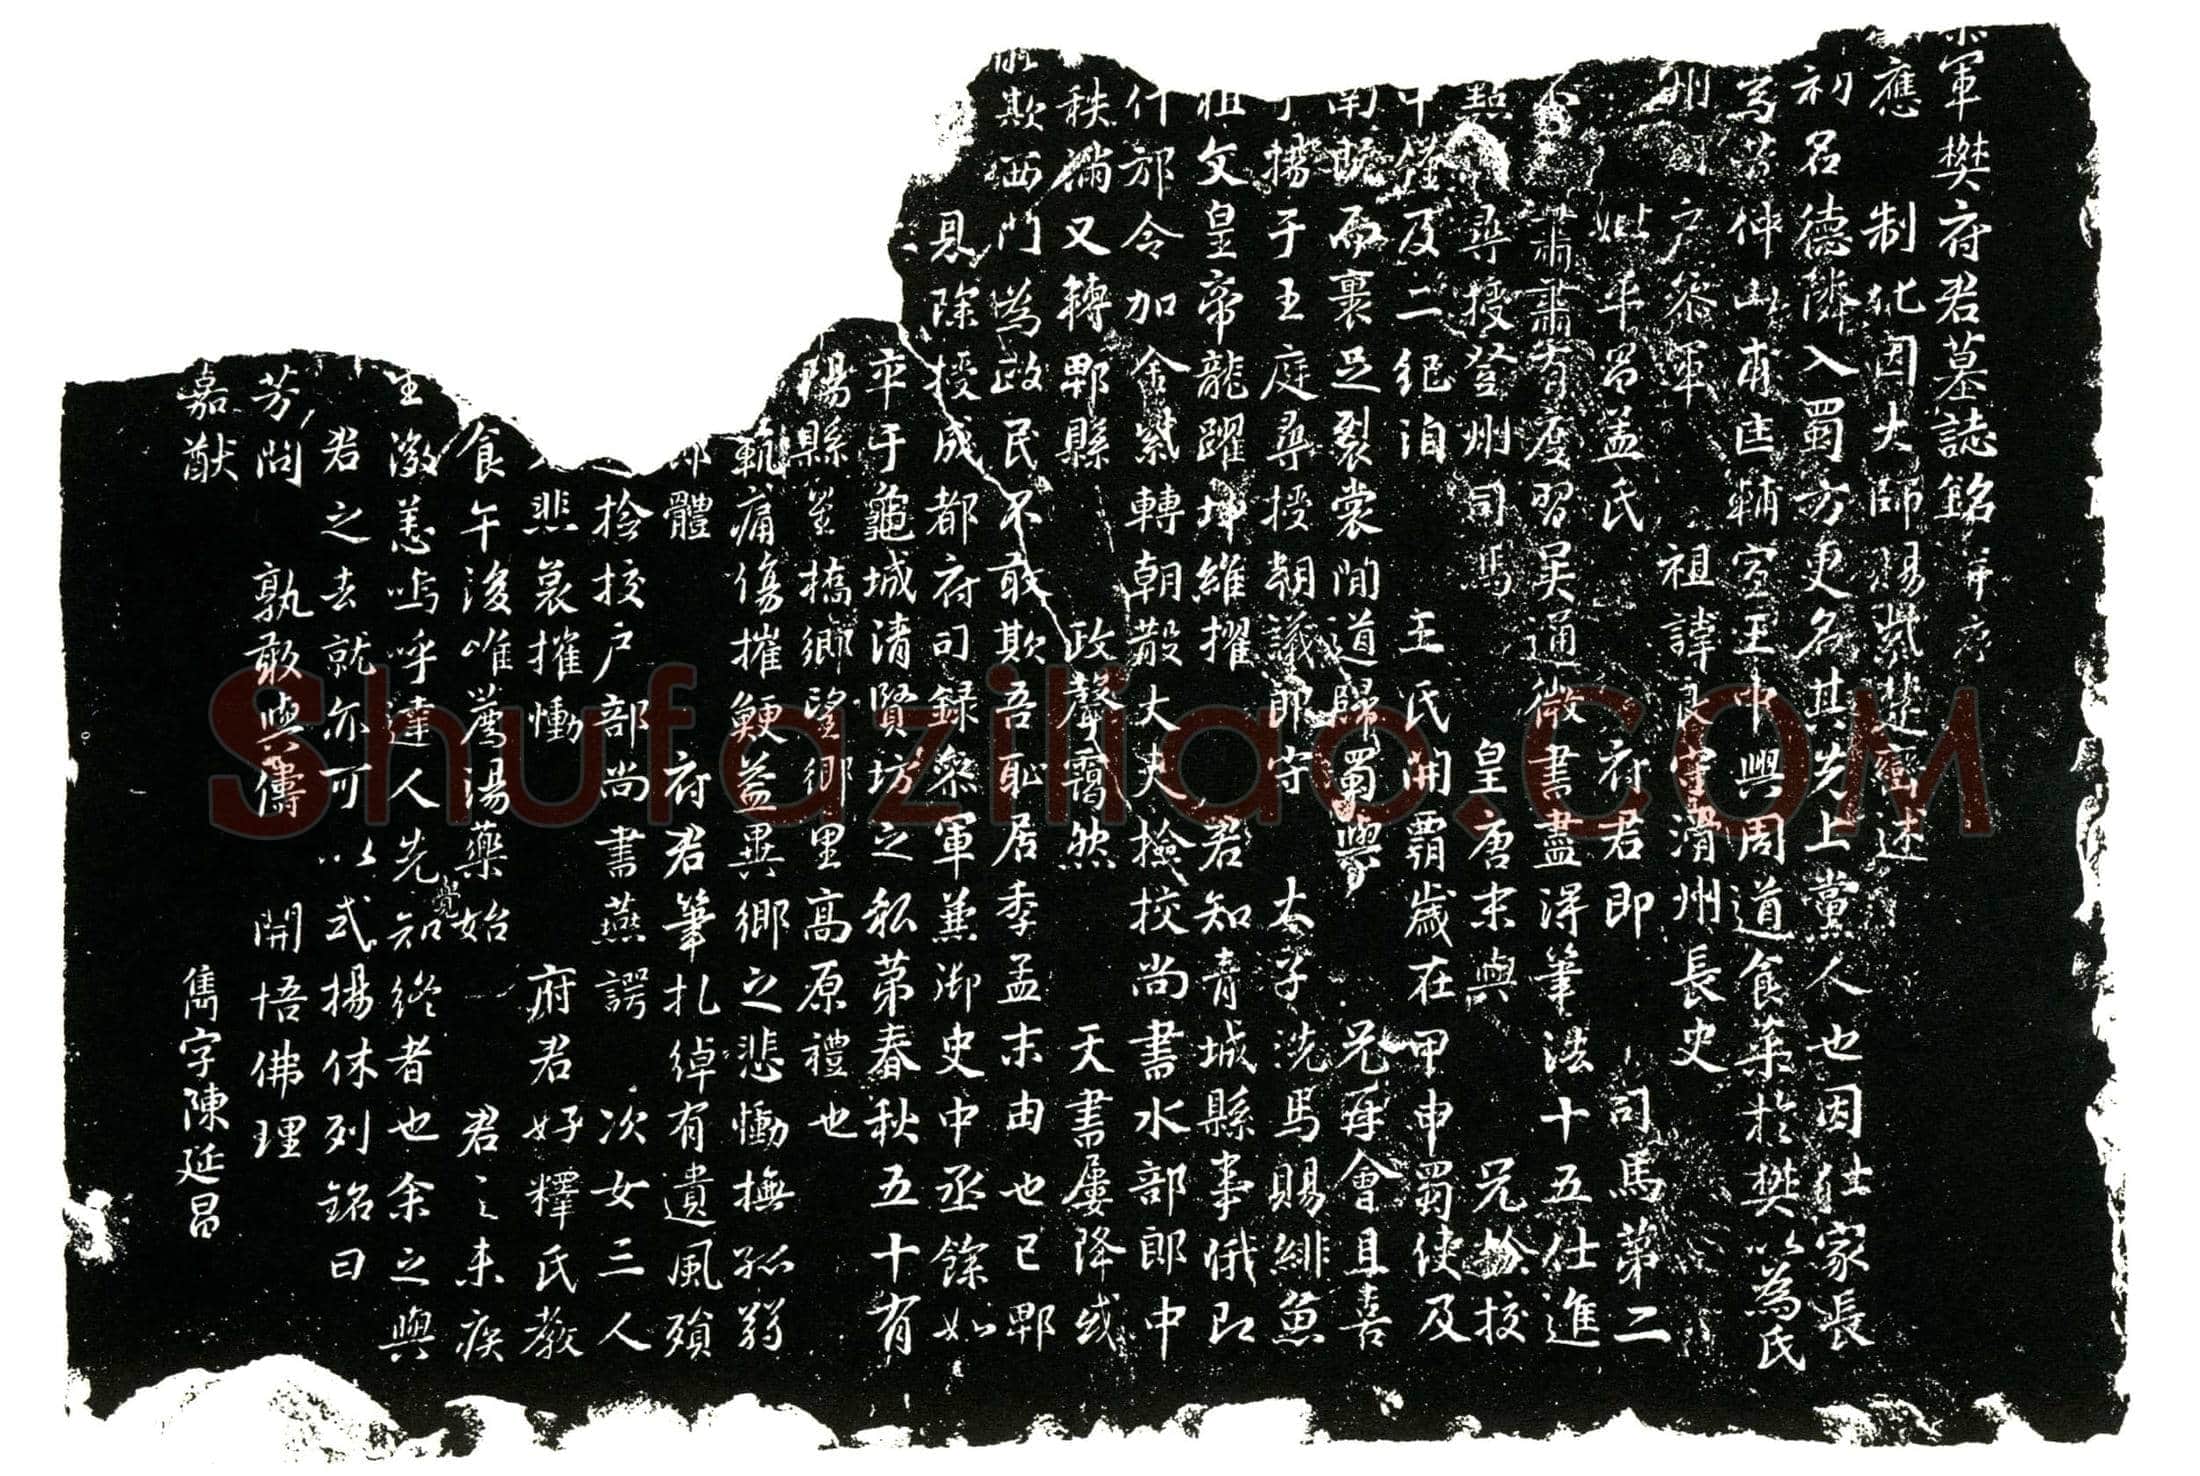 軍樊府君墓誌銘并序
應 制化因大師賜紫楚巒述
初名德隣入蜀方更名其先上黨人也因仕家長
仲山甫匡輔宣王中興周道食菜於樊以為氏
州 户叅軍 祖諱良守滑州長史
妣平昌孟氏 府君即 司馬第二
肅肅有度習吴通微書盡得筆法十五仕進
尋授登州司馬 皇唐末與 兄撿挍
僅及二紀洎 主氏開霸歲在甲申蜀使及
南眺而裹足裂裳閒道歸蜀與 兄再會且喜
揚于王庭尋授朝議郎守 太子洗馬賜緋魚
祖文皇帝龍躍坤維擢 君知青城縣事俄即
什邡令加金紫轉朝散大夫撿挍尚書水部郎中
秩滿又轉郫縣 政聲靄然 天書屢降或
欺西門為政民不敢欺吾恥居季孟末由也已郫
見除授成都府司録叅軍兼御史中丞餘如
卒于龜城清賢坊之私第春秋五十有
陽縣星橋鄉望鄉里高原禮也
軌痛傷摧鯁益異鄉之悲慟撫孤弱
體 府君筆扎綽有遺風殞
捨挍户部尚書燕諤 次女三人
悲裏摧慟 府君好釋氏教
食午後唯薦湯藥始 君之未疾
王激恙嗚呼達人先知覺終者也余之與
君之去就亦可以式揚休列銘曰
芳問 孰敢與儔 開悟佛理
嘉猷 雋字陳延昌
Shufaziliao.com